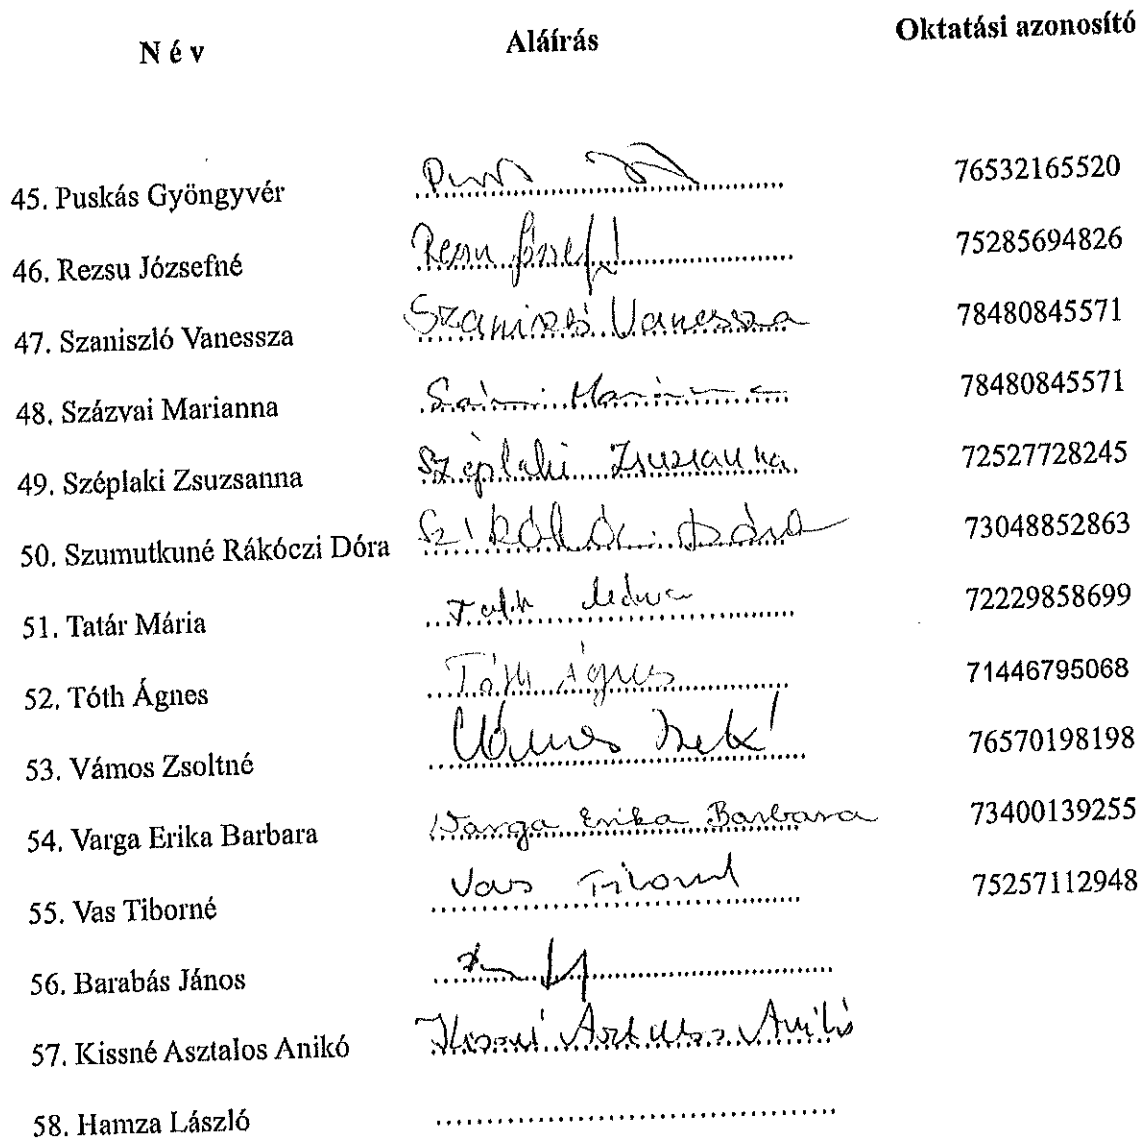 N é v Aláírás Oktatási azonosító
45. Puskás Gyöngyvér 76532165520
46. Rezsu Józsefné 75285694826
47. Szaniszló Vanessza Szaniszló Vanessza 78480845571
48. Százvai Marianna 78480845571
49. Széplaki Zsuzsanna Széplaki Zsuzsanna 72527728245
50. Szumutkuné Rákóczi Dóra Dóra 73048852863
51. Tatár Mária 72229858699
52. Tóth Ágnes Tóth Ágnes 71446795068
53. Vámos Zsoltné Vámos 76570198198
54. Varga Erika Barbara Varga Erika Barbara 73400139255
55. Vas Tiborné Vas Tiborné 75257112948
56. Barabás János
57. Kissné Asztalos Anikó Kissné Asztalos Anikó
58. Hamza László